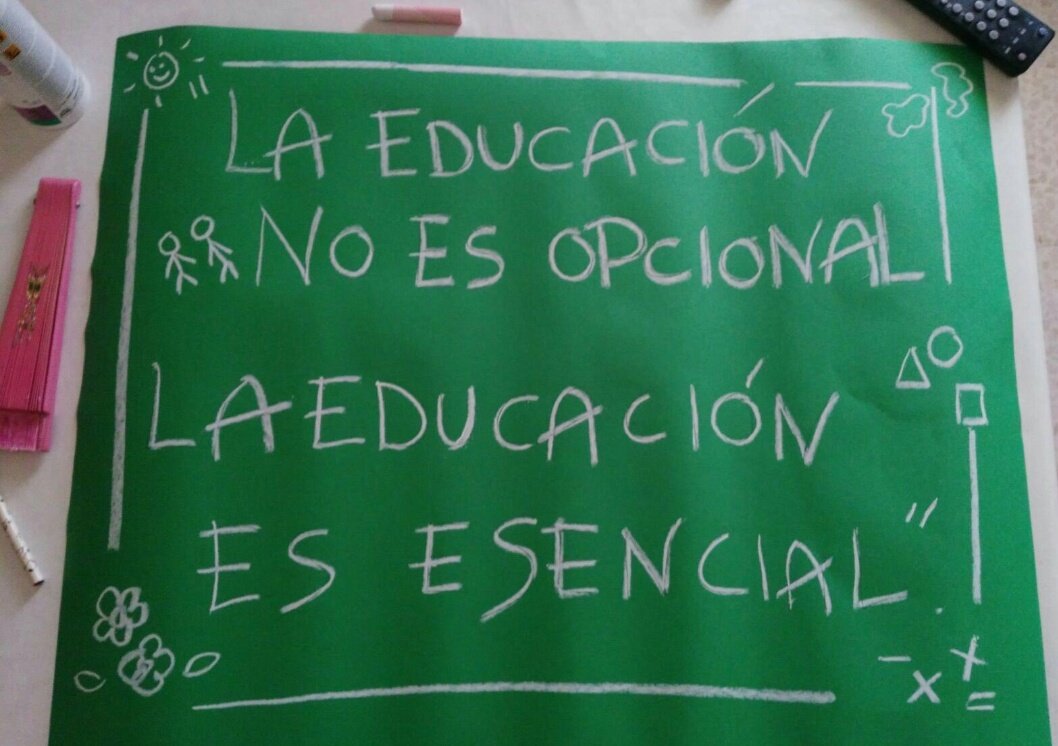 LA EDUCACIÓN
NO ES OPCIONAL
LA EDUCACIÓN
ES ESENCIAL".
- + x =